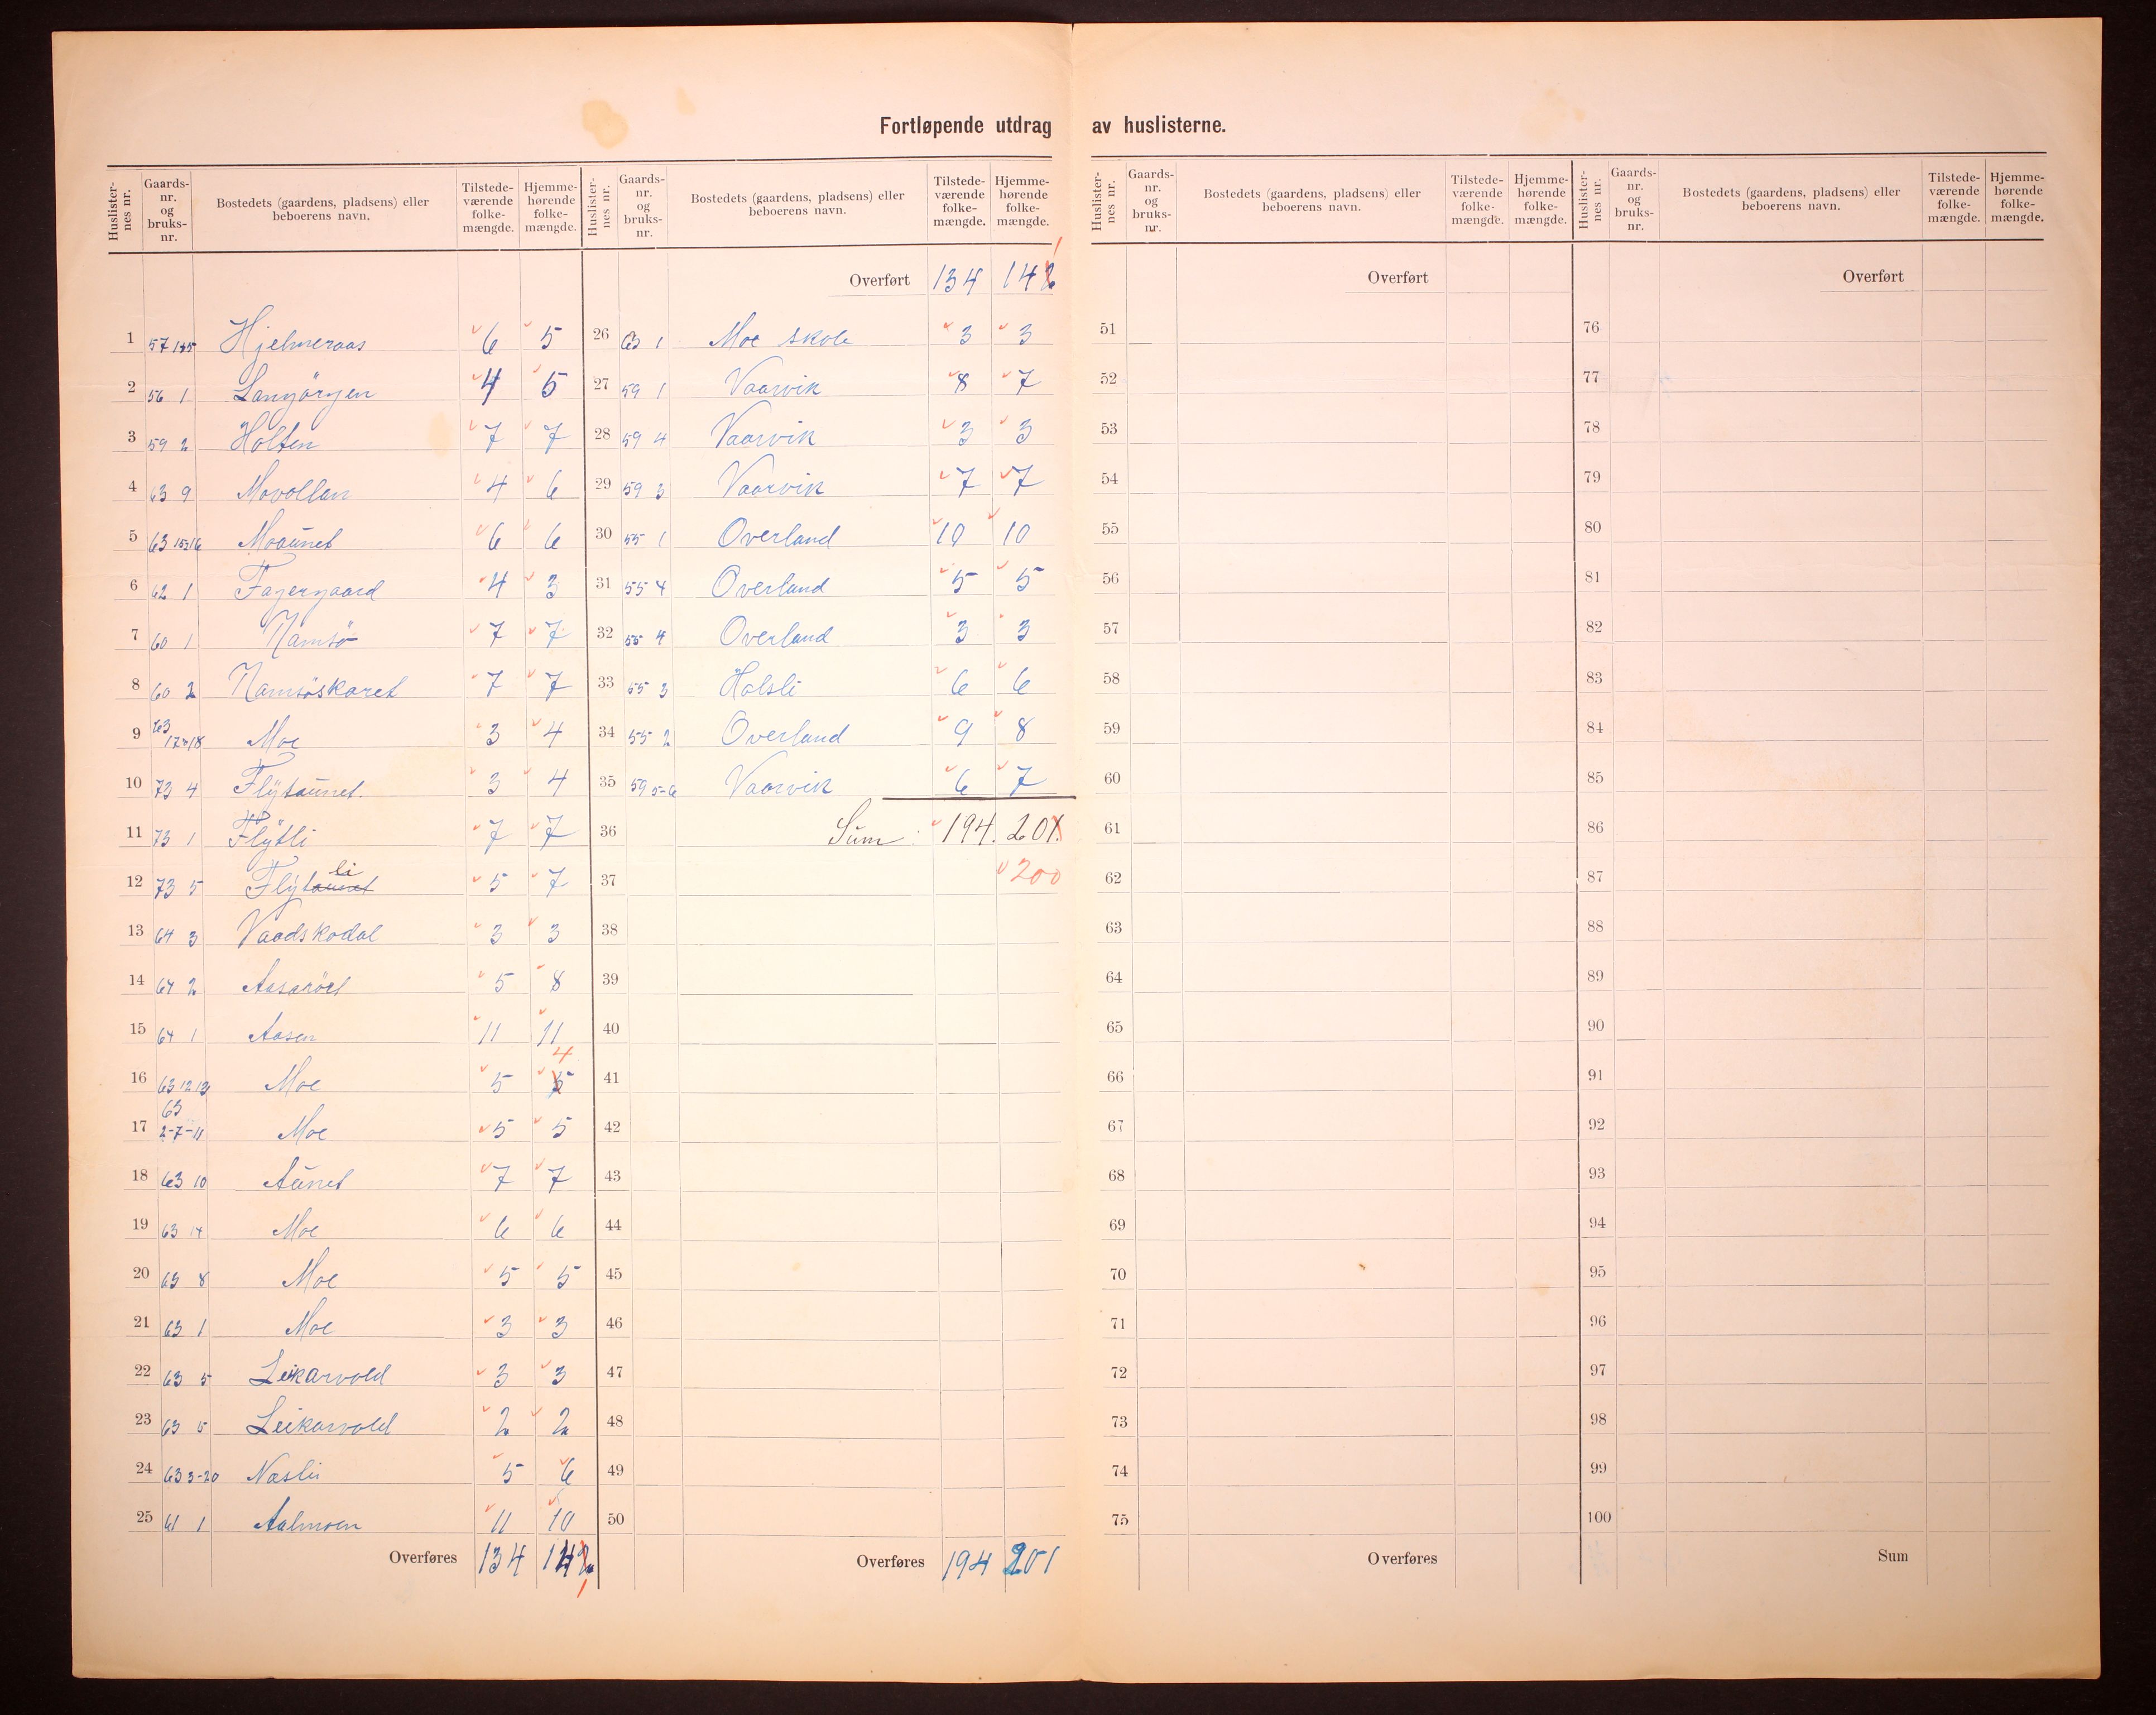 Fortløpende utdrag av huslisterne.
Huslister-nes nr. Gaards-nr. og bruks-nr. Bostedets (gaardens, pladsens) eller beboerens navn. Tilstede-værende folke-mængde. Hjemme-hørende folke-mængde.
1 57 Hjelmeraas 6 5
2 56 1 4 5
3 59 2 Holten 7 7
4 63 9 Movollan 4 6
5 63 15 16 Moaunet 6 6
6 62 1 Fagergaard 4 3
7 60 1 Namsö 7 7
8 60 2 Namsöskaret 7 7
9 63 17 18 Moe 3 4
10 73 4 Flÿtaunet. 3 4
11 73 1 Flÿtli 7 7
12 73 5 Flÿtaunet li 5 7
13 64 3 Vaadskodal 3 3
14 64 2 5 8
15 64 1 Aasen 11 11
16 63 12 13 Moe 5 5 4
17 63 2-7-11 Moe 5 5
18 63 10 Aunet 7 7
19 63 14 Moe 6 6
20 63 8 Moe 5 5
21 63 1 Moe 3 3
22 63 5 Leikarvold 3 3
23 63 5 Leikarvold 2 2
24 63 3-20 Næsli 5 6
25 61 1 Aalmoen 11 10
Overføres 134 142 1
Huslister-nes nr. Gaards-nr. og bruks-nr. Bostedets (gaardens, pladsens) eller beboerens navn. Tilstede-værende folke-mængde. Hjemme-hørende folke-mængde.
Overført 134 142 1
26 63 1 Moe skole 3 3
27 59 1 Vaarvik 8 7
28 59 4 Vaarvik 3 3
29 59 3 Vaarvik 7 7
30 55 1 Overland 10 10
31 55 4 Overland 5 5
32 55 4 Overland 3 3
33 55 3 Holsli 6 6
34 55 2 Overland 9 8
35 59 5-6 Vaarvik 6 7
36 Sum: 194. 201.
37 200
38
39
40
41
42
43
44
45
46
47
48
49
50
Overføres 194 201
Huslister-nes nr. Gaards-nr. og bruks-nr. Bostedets (gaardens, pladsens) eller beboerens navn. Tilstede-værende folke-mængde. Hjemme-hørende folke-mængde.
Overført
51
52
53
54
55
56
57
58
59
60
61
62
63
64
65
66
67
68
69
70
71
72
73
74
75
Overføres
Huslister-nes nr. Gaards-nr. og bruks-nr. Bostedets (gaardens, pladsens) eller beboerens navn. Tilstede-værende folke-mængde. Hjemme-hørende folke-mængde.
Overført
76
77
78
79
80
81
82
83
84
85
86
87
88
89
90
91
92
93
94
95
96
97
98
99
100
Sum